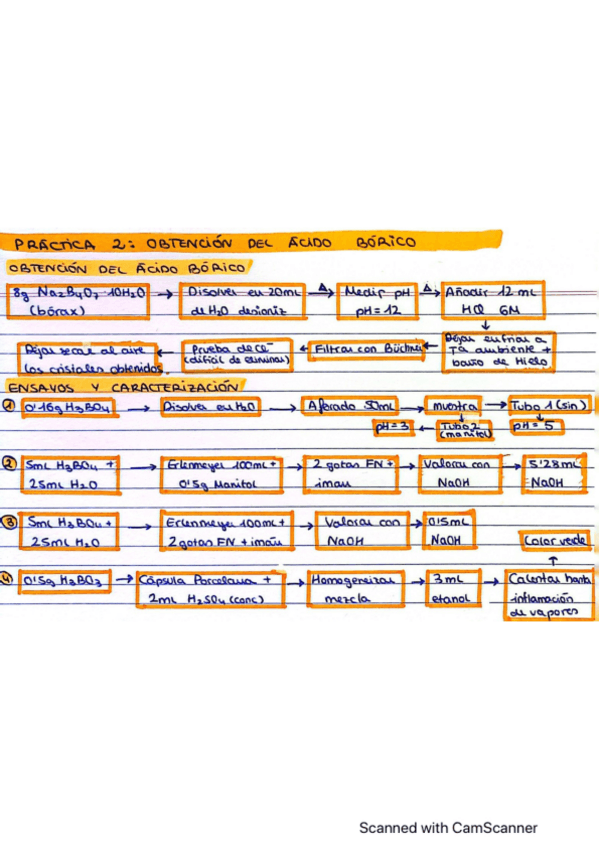 PRÁCTICA 2: OBTENCIÓN DEL ÁCIDO BÓRICO
OBTENCIÓN DEL ÁCIDO BÓRICO
8g Na2B4O7 10H2O → Disolver en 20mL → Δ Medir pH → Δ Añadir 12 mL
(bórax) de H2O desioniz pH = 12 HCl 6M
Dejar secar al aire ← Prueba de Cl- ← Filtrar con Büchner ← Dejar enfriar a
los cristales obtenidos. (difícil de eliminar) Tª ambiente +
baño de Hielo
ENSAYOS Y CARACTERIZACIÓN
① 0'16g H3BO4 → Disolver en H2O → Aforado 50mL → muestra → Tubo 1 (sin)
pH = 3 ← Tubo 2 pH = 5
(manitol)
② 5mL H3BO4 + → Erlenmeyer 100mL + → 2 gotas FN + → Valorar con → 5'28mL
25mL H2O 0'5g Manitol imán NaOH NaOH
③ 5mL H3BO4 + → Erlenmeyer 100mL + → Valorar con → 0'5mL
25mL H2O 2 gotas FN + imán NaOH NaOH
Color verde
④ 0'5g H3BO3 → Cápsula Porcelana + → Homogeneizar → 3mL → Calentar hasta
2mL H2SO4 (conc) mezcla etanol inflamación
de vapores
Scanned with CamScanner